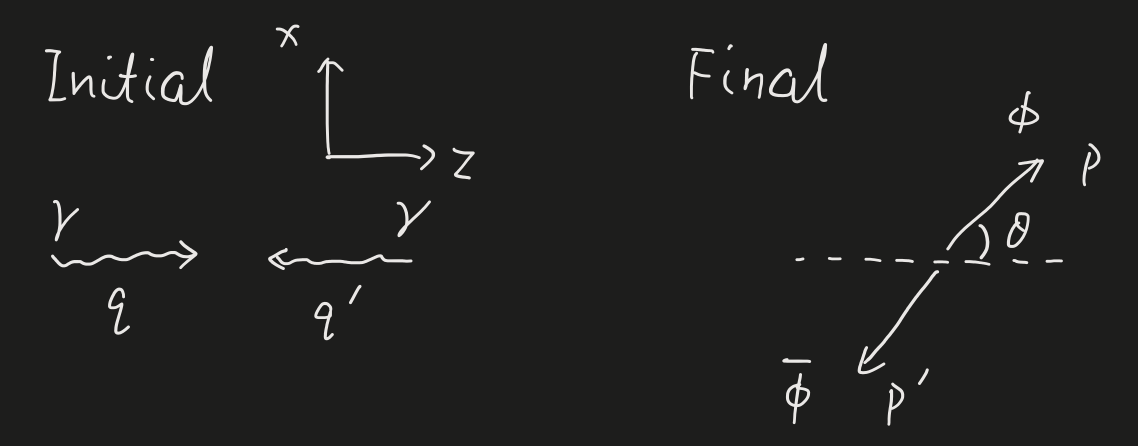 Initial
x
z
γ
γ
q
q′
Final
ϕ
p
θ
ϕ̅
p′